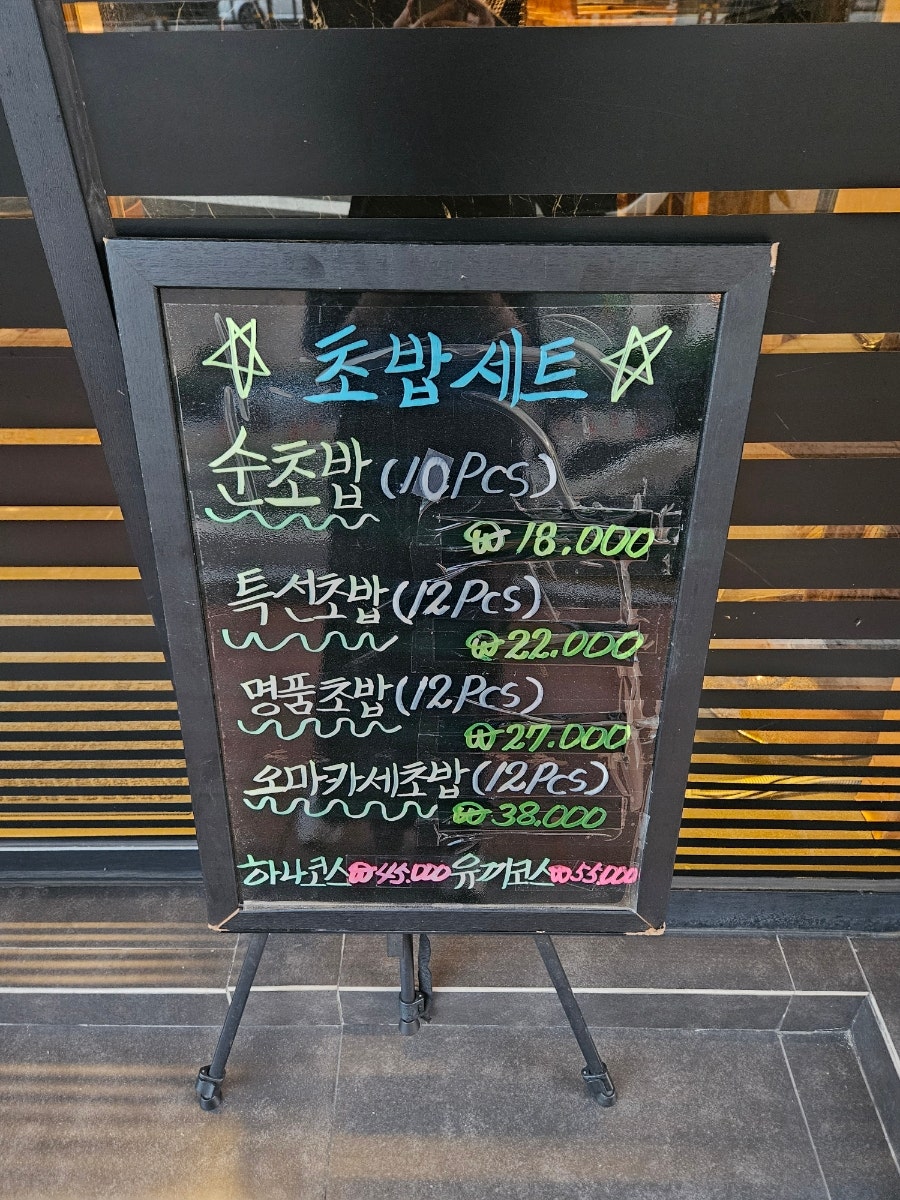 초밥세트
순초밥 (10Pcs)
₩18.000
특선초밥 (12Pcs)
₩22.000
명품초밥 (12Pcs)
₩27.000
오마카세초밥 (12Pcs)
₩38.000
하나코스 ₩45.000 유끼코스 ₩55.000